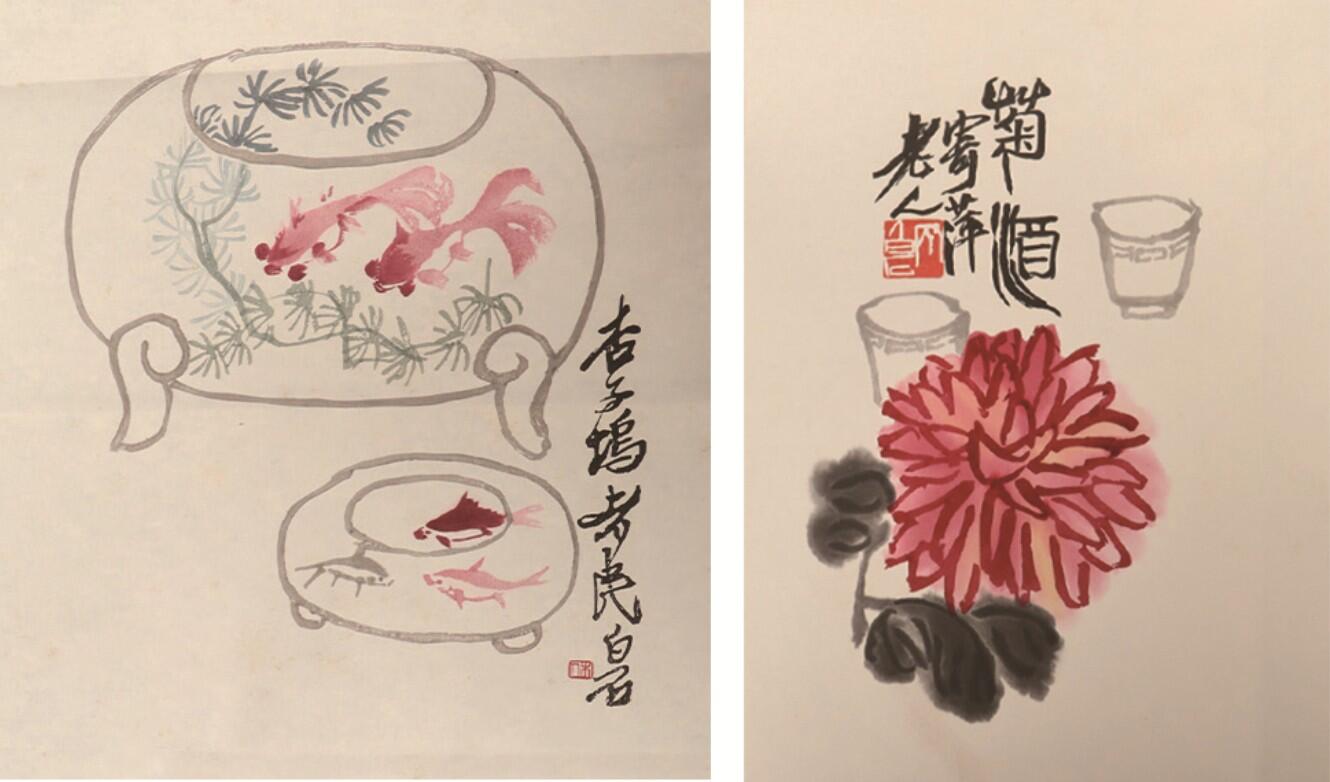 杏子塢老民白石
菊酒
寄萍
老人